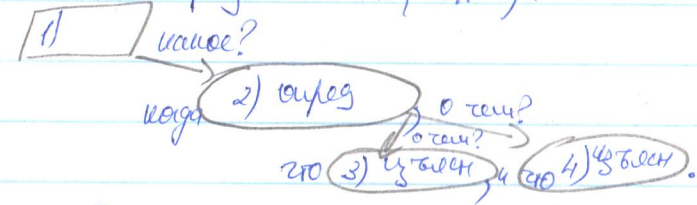 1) какое?
когда 2) опред о чем?
о чем?
что 3) изъясн, и что 4) изъясн.